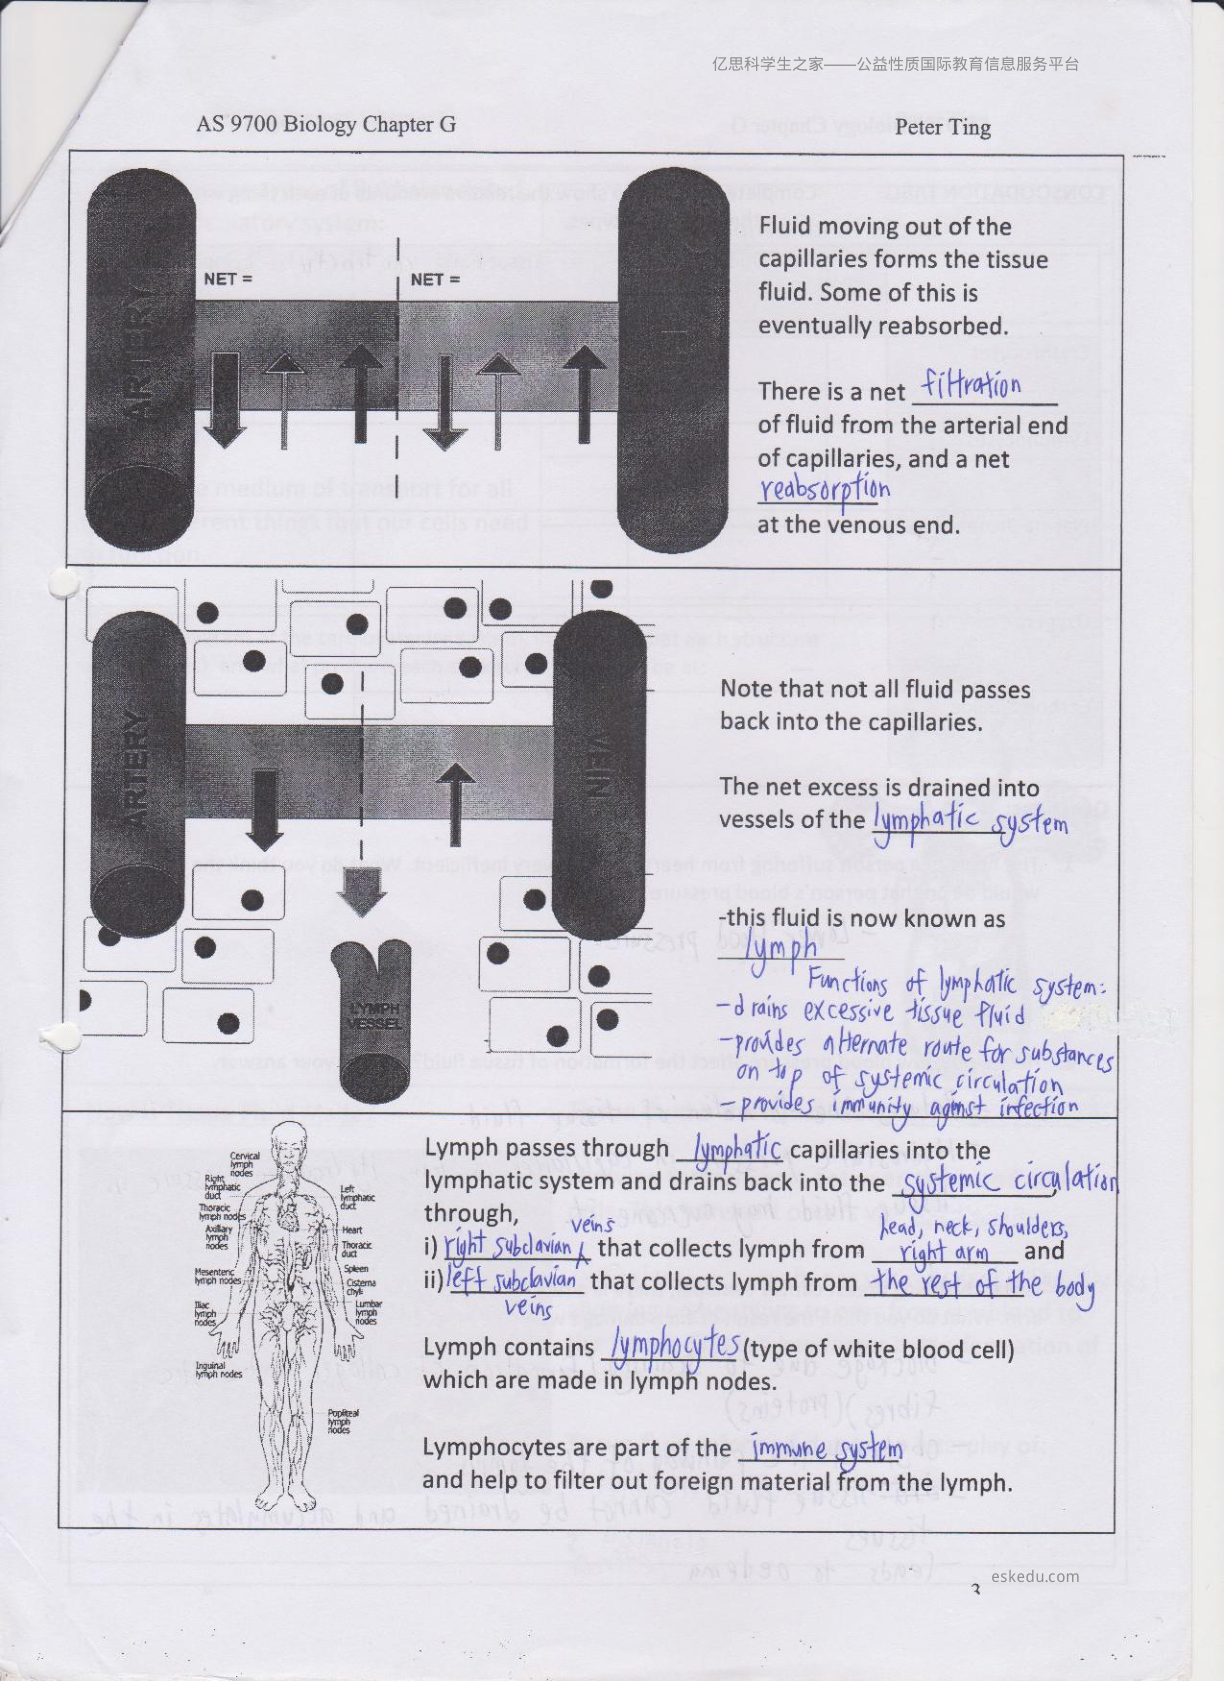 亿思科学生之家——公益性质国际教育信息服务平台
AS 9700 Biology Chapter G
Peter Ting
ARTERY
NET =
NET =
Fluid moving out of the
capillaries forms the tissue
fluid. Some of this is
eventually reabsorbed.
There is a net filtration
of fluid from the arterial end
of capillaries, and a net
reabsorption
at the venous end.
ARTERY
VEIN
LYMPH
VESSEL
Note that not all fluid passes
back into the capillaries.
The net excess is drained into
vessels of the lymphatic system
-this fluid is now known as
lymph
Functions of lymphatic system:
- drains excessive tissue fluid
- provides alternate route for substances
on top of systemic circulation
- provides immunity against infection
Cervical
lymph
nodes
Right
lymphatic
duct
Thoracic
lymph nodes
Axillary
lymph
nodes
Mesenteric
lymph nodes
Iliac
lymph
nodes
Inguinal
lymph nodes
Left
lymphatic
duct
Heart
Thoracic
duct
Spleen
Cisterna
chyli
Lumbar
lymph
nodes
Popliteal
lymph
nodes
Lymph passes through lymphatic capillaries into the
lymphatic system and drains back into the systemic circulation
through,
veins
head, neck, shoulders,
i) right subclavian that collects lymph from right arm and
ii) left subclavian that collects lymph from the rest of the body
veins
Lymph contains lymphocytes (type of white blood cell)
which are made in lymph nodes.
Lymphocytes are part of the immune system
and help to filter out foreign material from the lymph.
eskedu.com
3